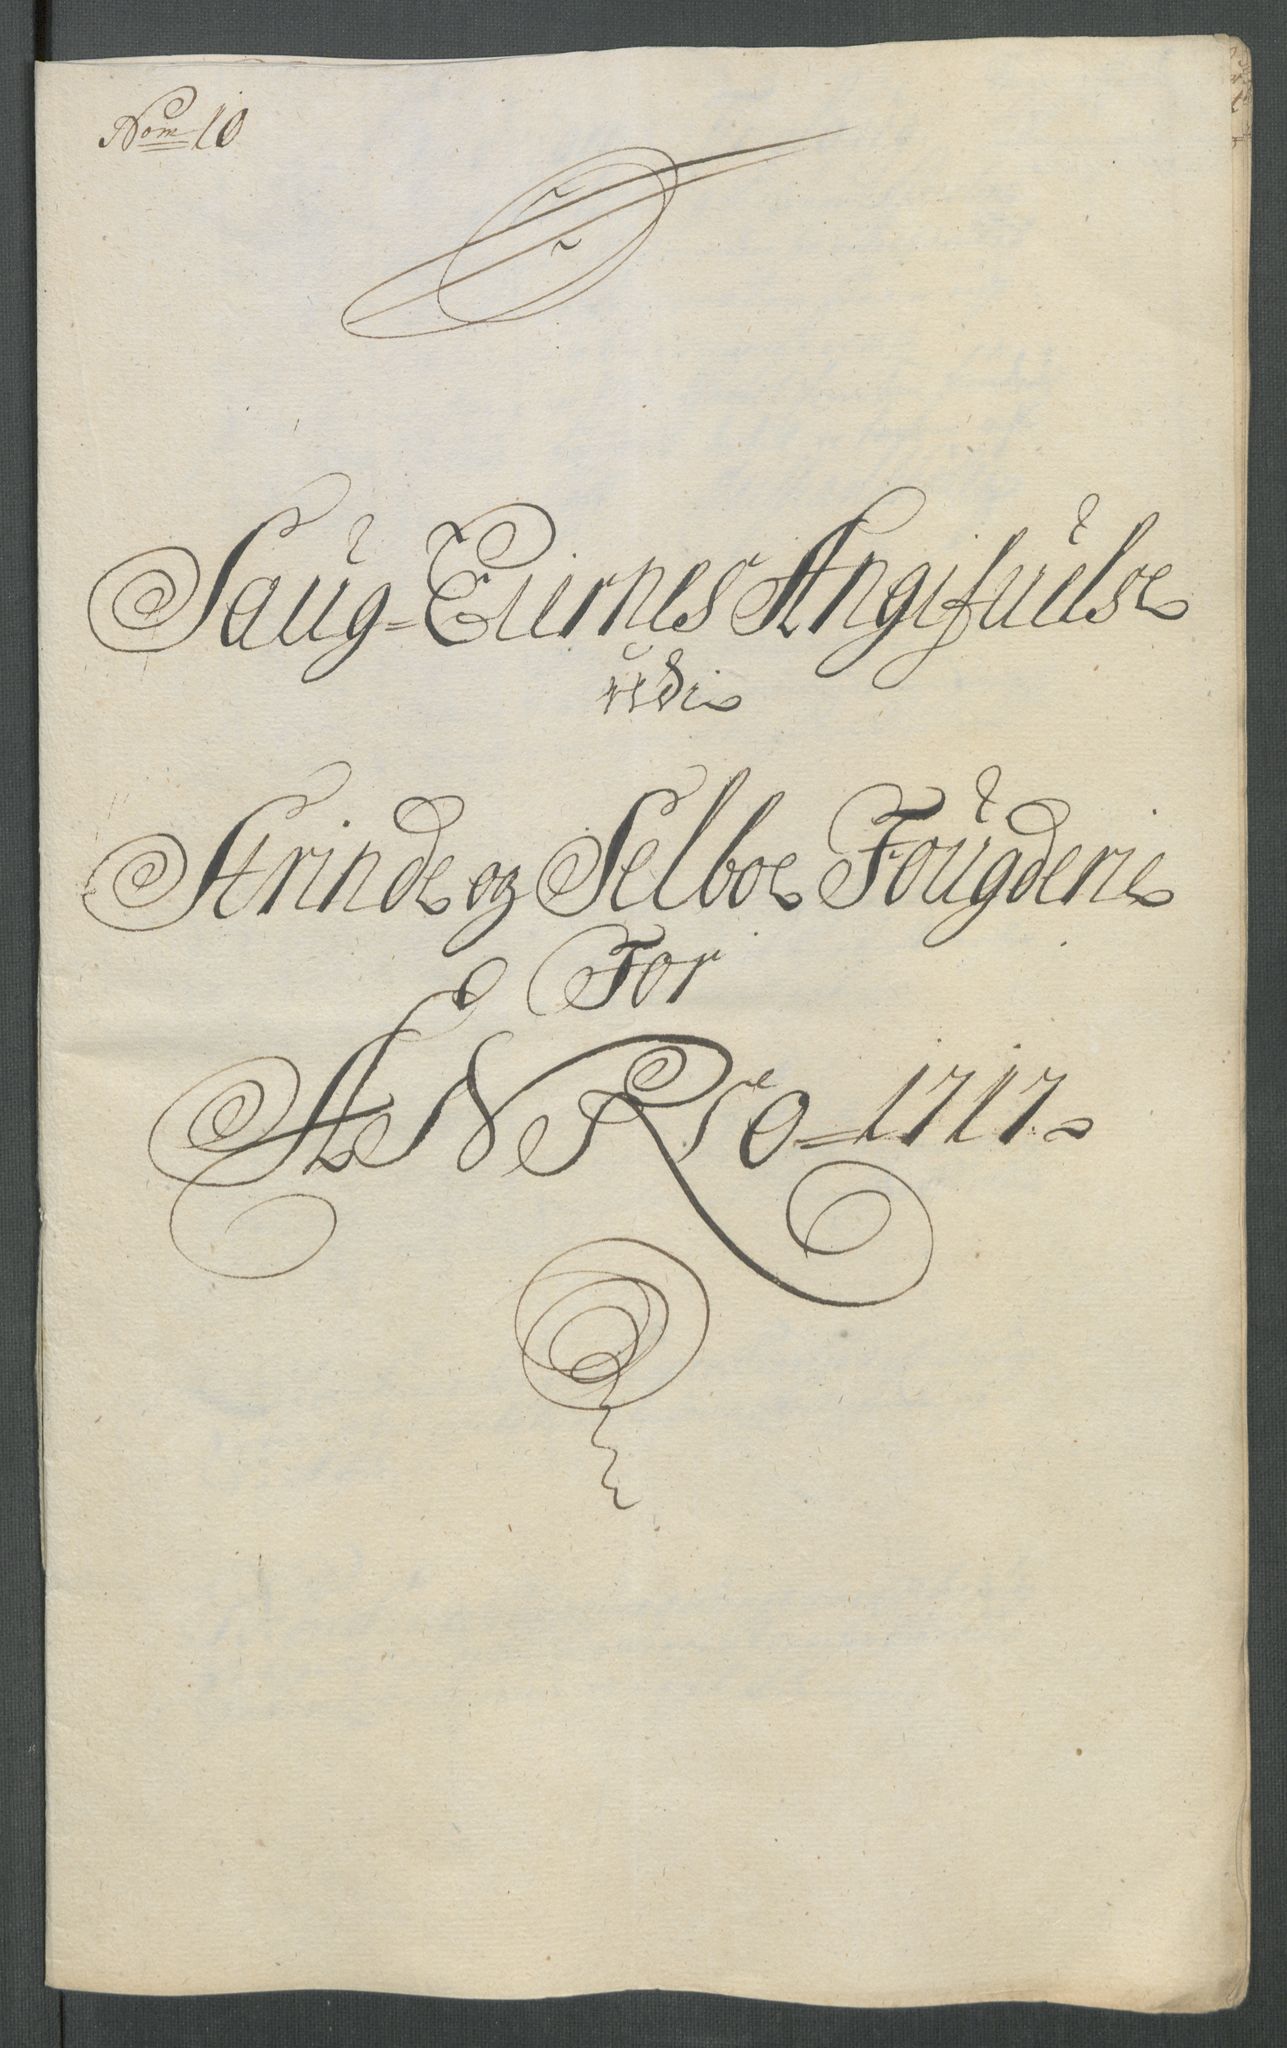 Nom 10
Saug-Eiernes Angifuelse
udi
Strinde og Selboe Fougderie
For
ANNO-1717